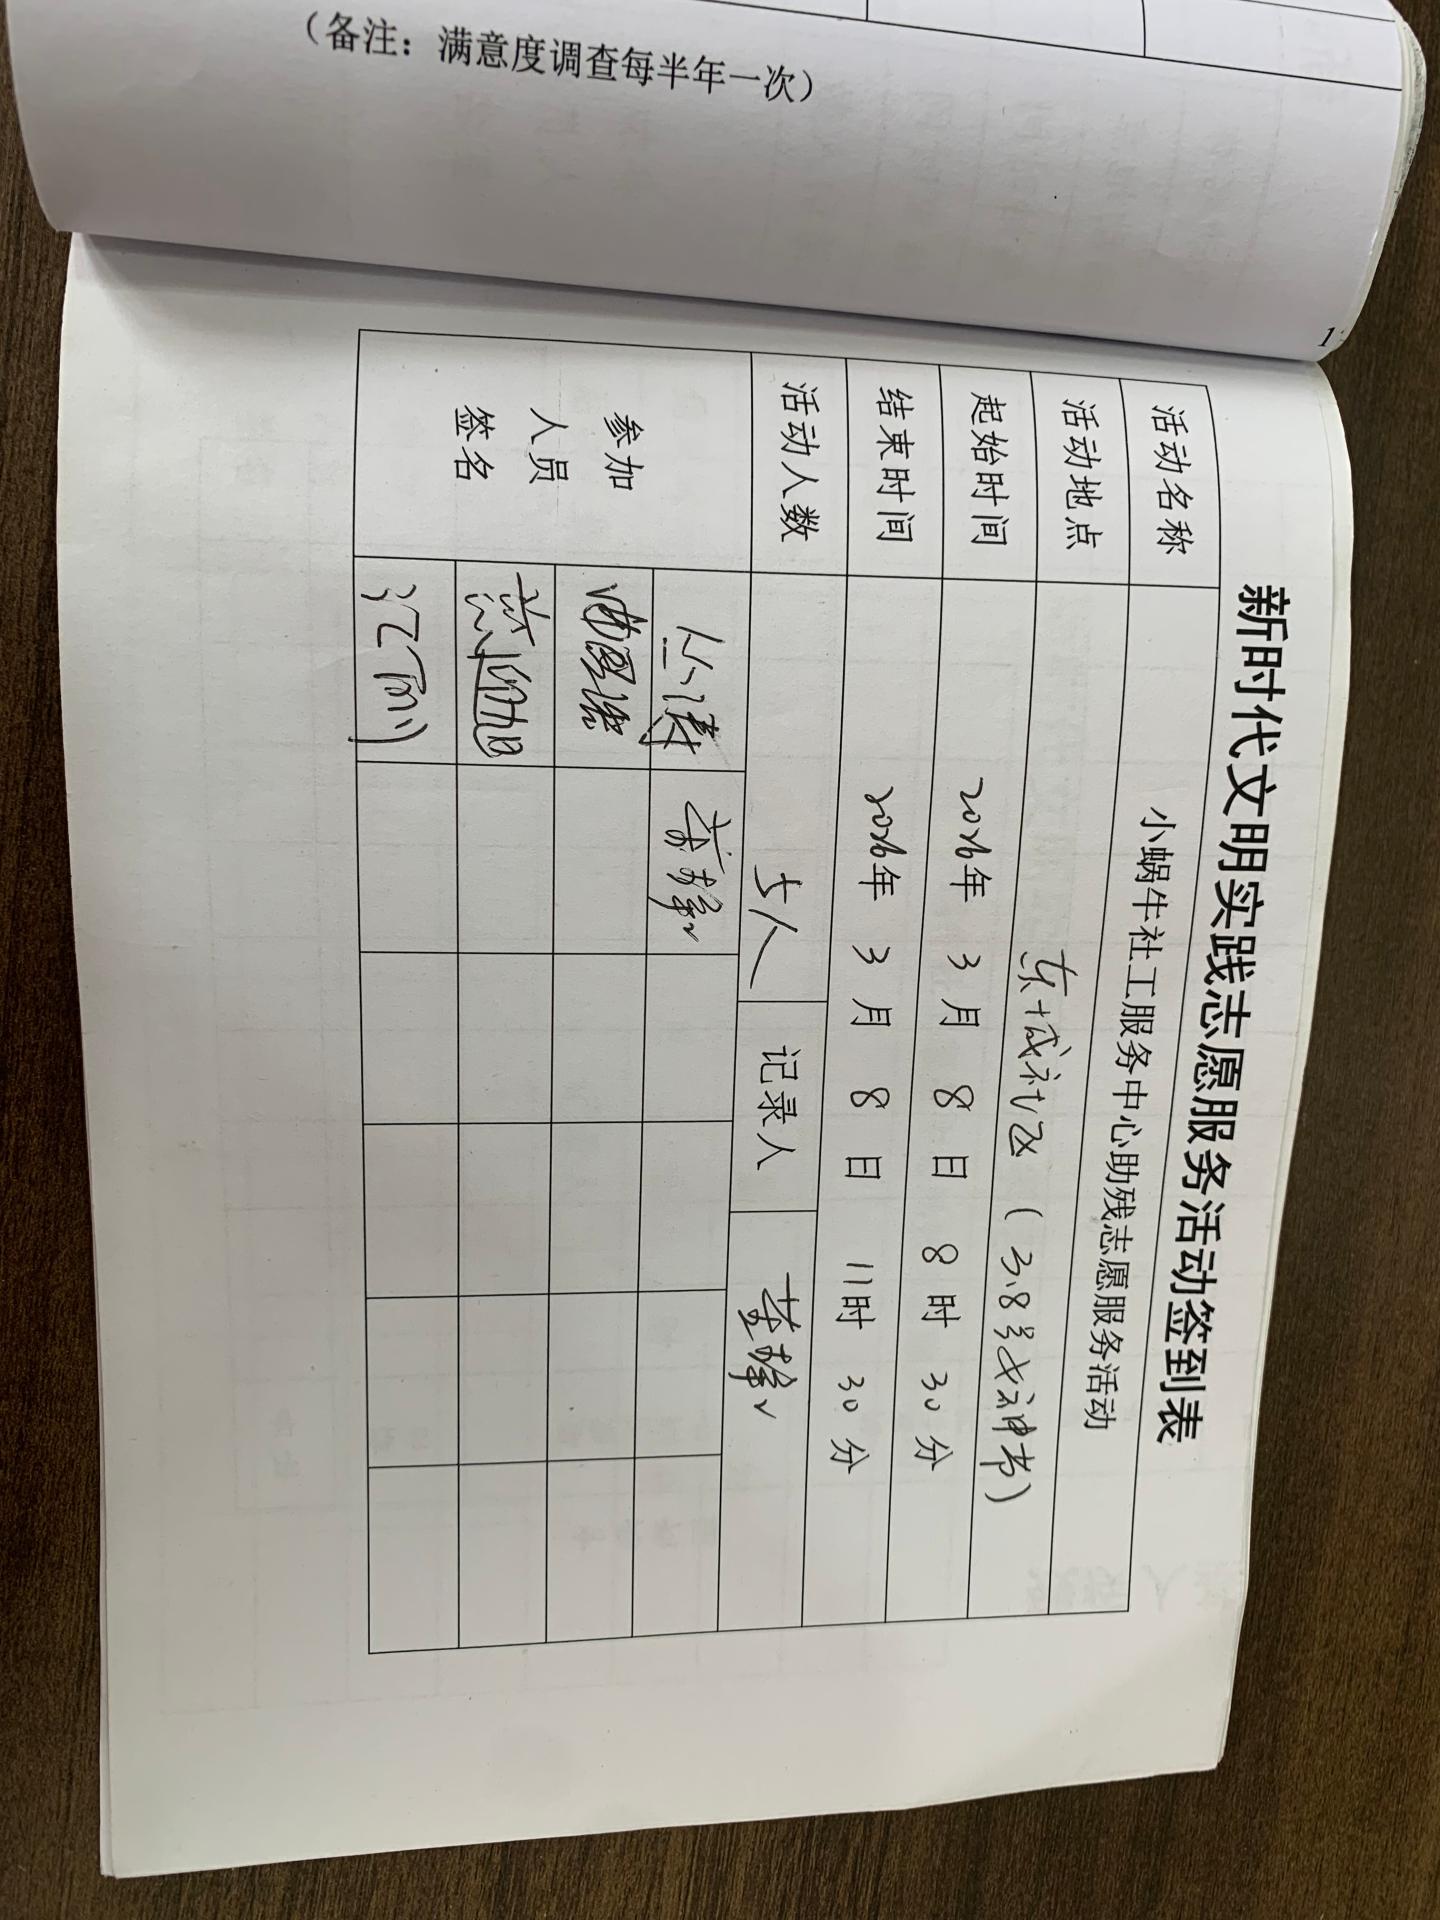 （备注：满意度调查每半年一次）
1
新时代文明实践志愿服务活动签到表
活动名称 小蜗牛社工服务中心助残志愿服务活动
活动地点 东城社区（3.8号女神节）
起始时间 2026年 3月 8日 8时 30分
结束时间 2026年 3月 8日 11时 30分
活动人数 5人 记录人
参加
人员
签名
丛涛